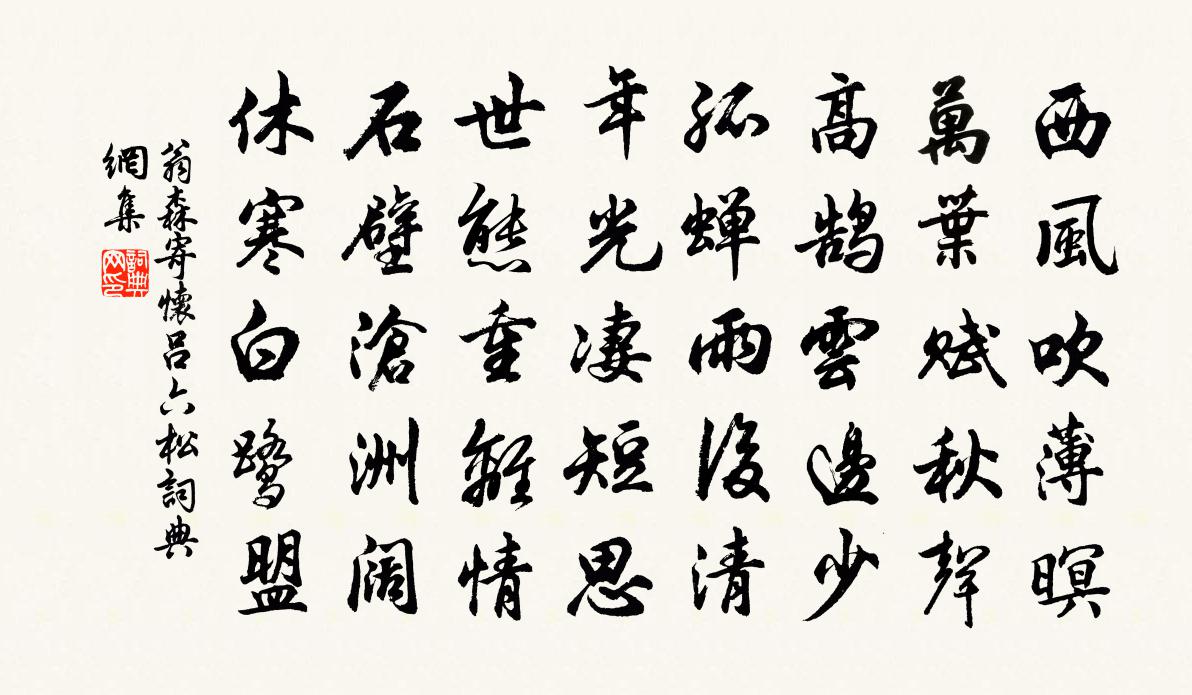 西風吹薄暝
萬葉賦秋聲
高鵠雲邊少
孤蝉雨後清
年光凄短思
世態重離情
石壁滄洲阔
休寒白鷺盟
翁森寄懷呂六松詞典
網集
詞典
网印